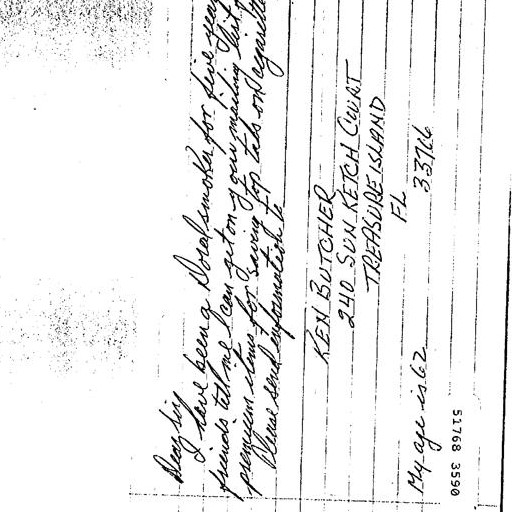 Dear Sir,
I have been a Doral smoker for five
friends tell me I can get on your mailing list
premium items for saving top tabs on
Please send information to
KEN BUTCHER
240 SUN KETCH COURT
TREASURE ISLAND
FL 33706
My age is 62
51768 3590